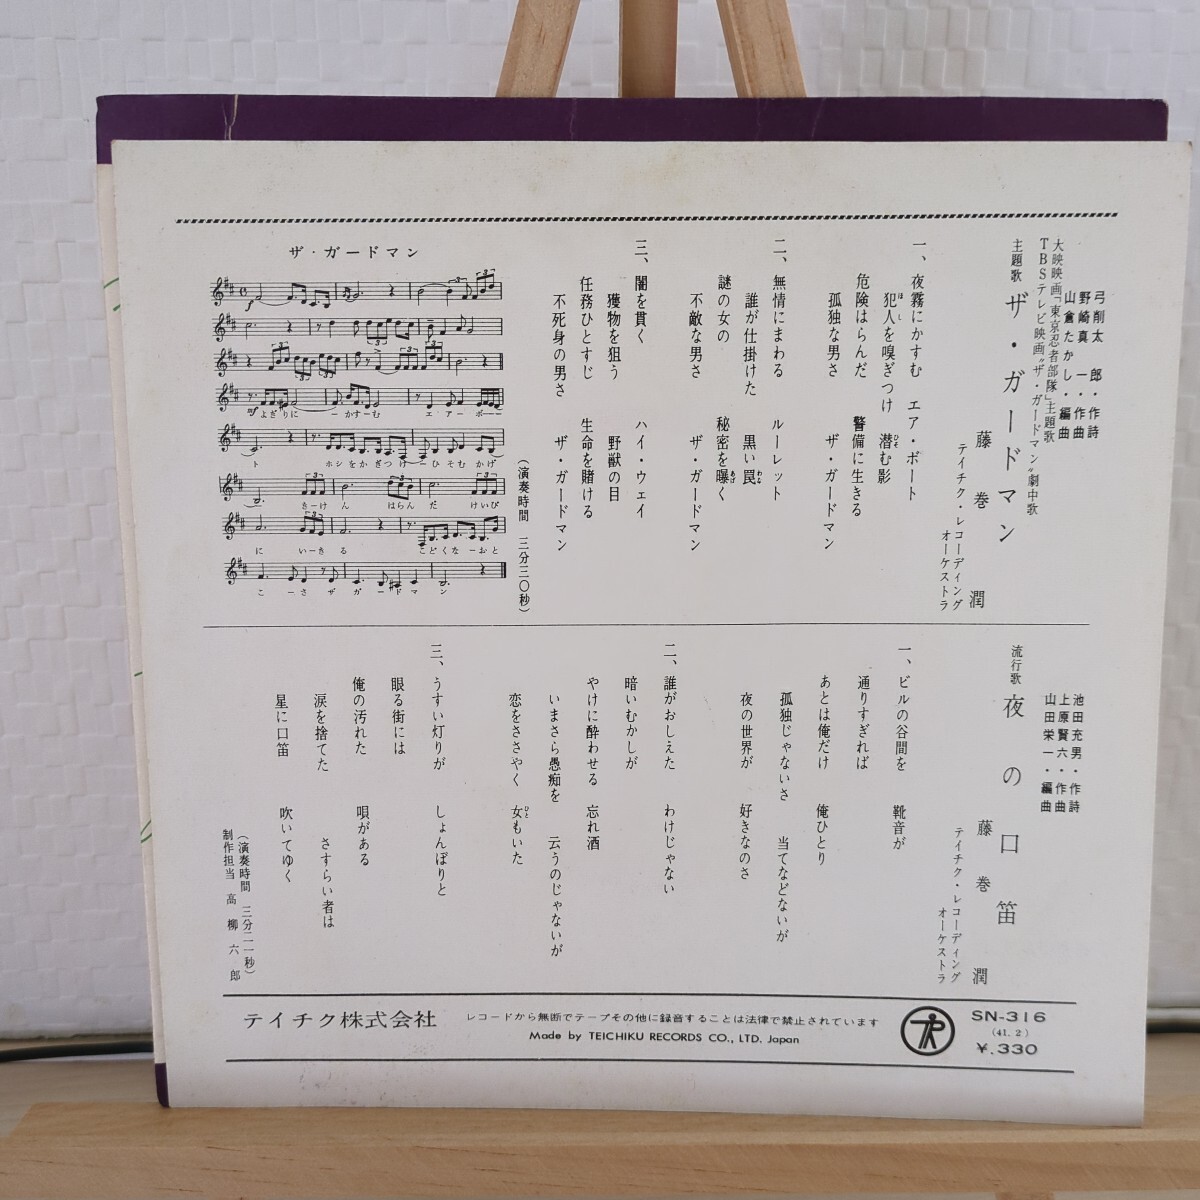 弓削太郎・作詩
野崎真一・作曲
山倉たかし・編曲
大映映画「東京忍者部隊」主題歌
TBSテレビ映画〝ザ・ガードマン〟劇中歌
主題歌 ザ・ガードマン
藤巻潤
テイチク・レコーディング
オーケストラ
一、夜霧にかすむ エア・ボート
犯人を嗅ぎつけ 潜む影
ほし
ひそ
危険はらんだ 警備に生きる
孤独な男さ ザ・ガードマン
二、無情にまわる ルーレット
誰が仕掛けた 黒い罠
わな
謎の女の 秘密を曝く
あば
不敵な男さ ザ・ガードマン
三、闇を貫く ハイ・ウェイ
獲物を狙う 野獣の目
任務ひとすじ 生命を賭ける
不死身の男さ ザ・ガードマン
(演奏時間 三分三〇秒)
ザ・ガードマン
よぎりに ーかすーむ エ アー ボーーー
ト ホシをかぎつけーひそむかげ
きーけん はらんだ けいび
に いーきる こどくなーおと
こーさ ザ ガードマン
流行歌 夜の口笛
池田充男・作詩
上原賢六・作曲
山田栄一・編曲
藤巻潤
テイチク・レコーディング
オーケストラ
一、ビルの谷間を 靴音が
通りすぎれば
あとは俺だけ 俺ひとり
孤独じゃないさ 当てなどないが
夜の世界が 好きなのさ
二、誰がおしえた わけじゃない
暗いむかしが
やけに酔わせる 忘れ酒
いまさら愚痴を 云うのじゃないが
恋をささやく 女もいた
ひと
三、うすい灯りが しょんぼりと
眠る街には
俺の汚れた 唄がある
涙を捨てた さすらい者は
星に口笛 吹いてゆく
(演奏時間 三分二一秒)
制作担当 高柳六郎
テイチク株式会社
レコードから無断でテープその他に録音することは法律で禁止されています
Made by TEICHIKU RECORDS CO., LTD. Japan
SN-316
(41.2)
¥.330